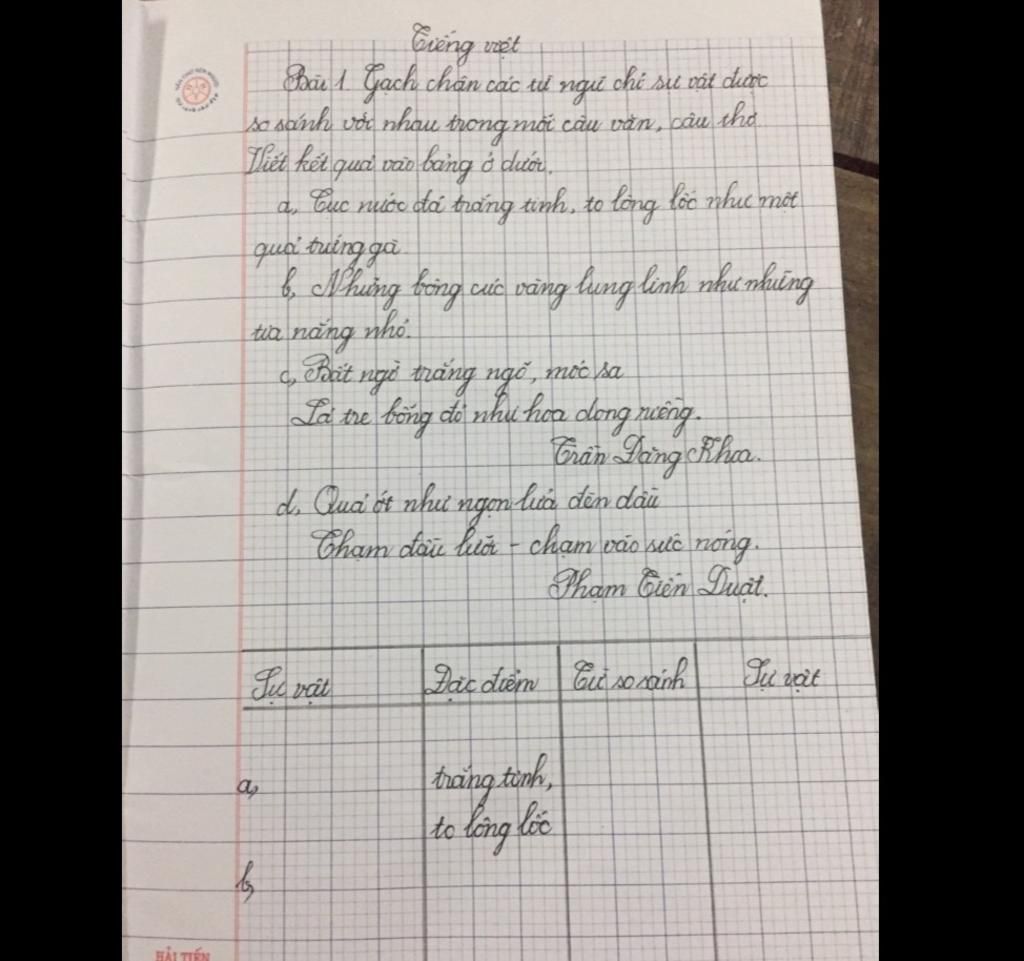 Tiếng việt
Bài 1. Gạch chân các từ ngữ chỉ sự vật được
so sánh với nhau trong mỗi câu văn, câu thơ
Viết kết quả vào bảng ở dưới.
a, Cục nước đá trắng tinh, to lông lốc như một
quả trứng gà
b, Những bông cúc vàng lung linh như những
tia nắng nhỏ.
c, Bất ngờ trắng ngõ, móc sa
Lá tre bỗng đỏ như hoa dong riềng.
Trần Đăng Khoa.
d, Quả ớt như ngọn lửa đèn dầu
Chạm đầu lưỡi - chạm vào sức nóng.
Phạm Tiến Duật.
Sự vật Đặc điểm Từ so sánh Sự vật
a, trắng tinh,
to lông lốc
b,
HẢI TIẾN